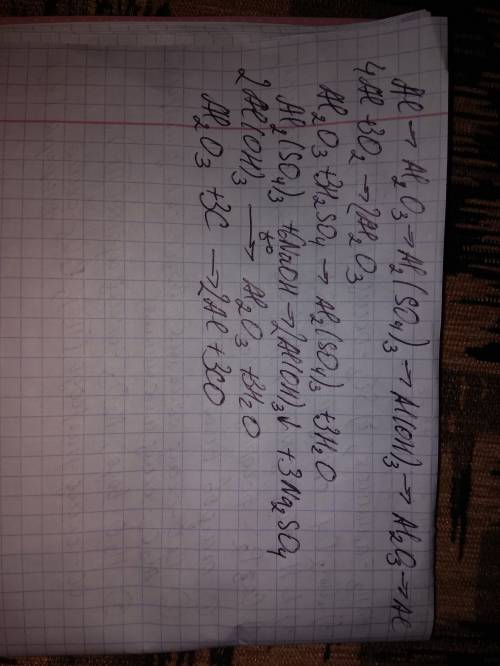 Al → Al₂O₃ → Al₂(SO₄)₃ → Al(OH)₃ → Al₂O₃ → Al
4Al + 3O₂ → 2Al₂O₃
Al₂O₃ + 3H₂SO₄ → Al₂(SO₄)₃ + 3H₂O
Al₂(SO₄)₃ + 6NaOH → 2Al(OH)₃↓ + 3Na₂SO₄
2Al(OH)₃ —t°→ Al₂O₃ + 3H₂O
Al₂O₃ + 3C → 2Al + 3CO